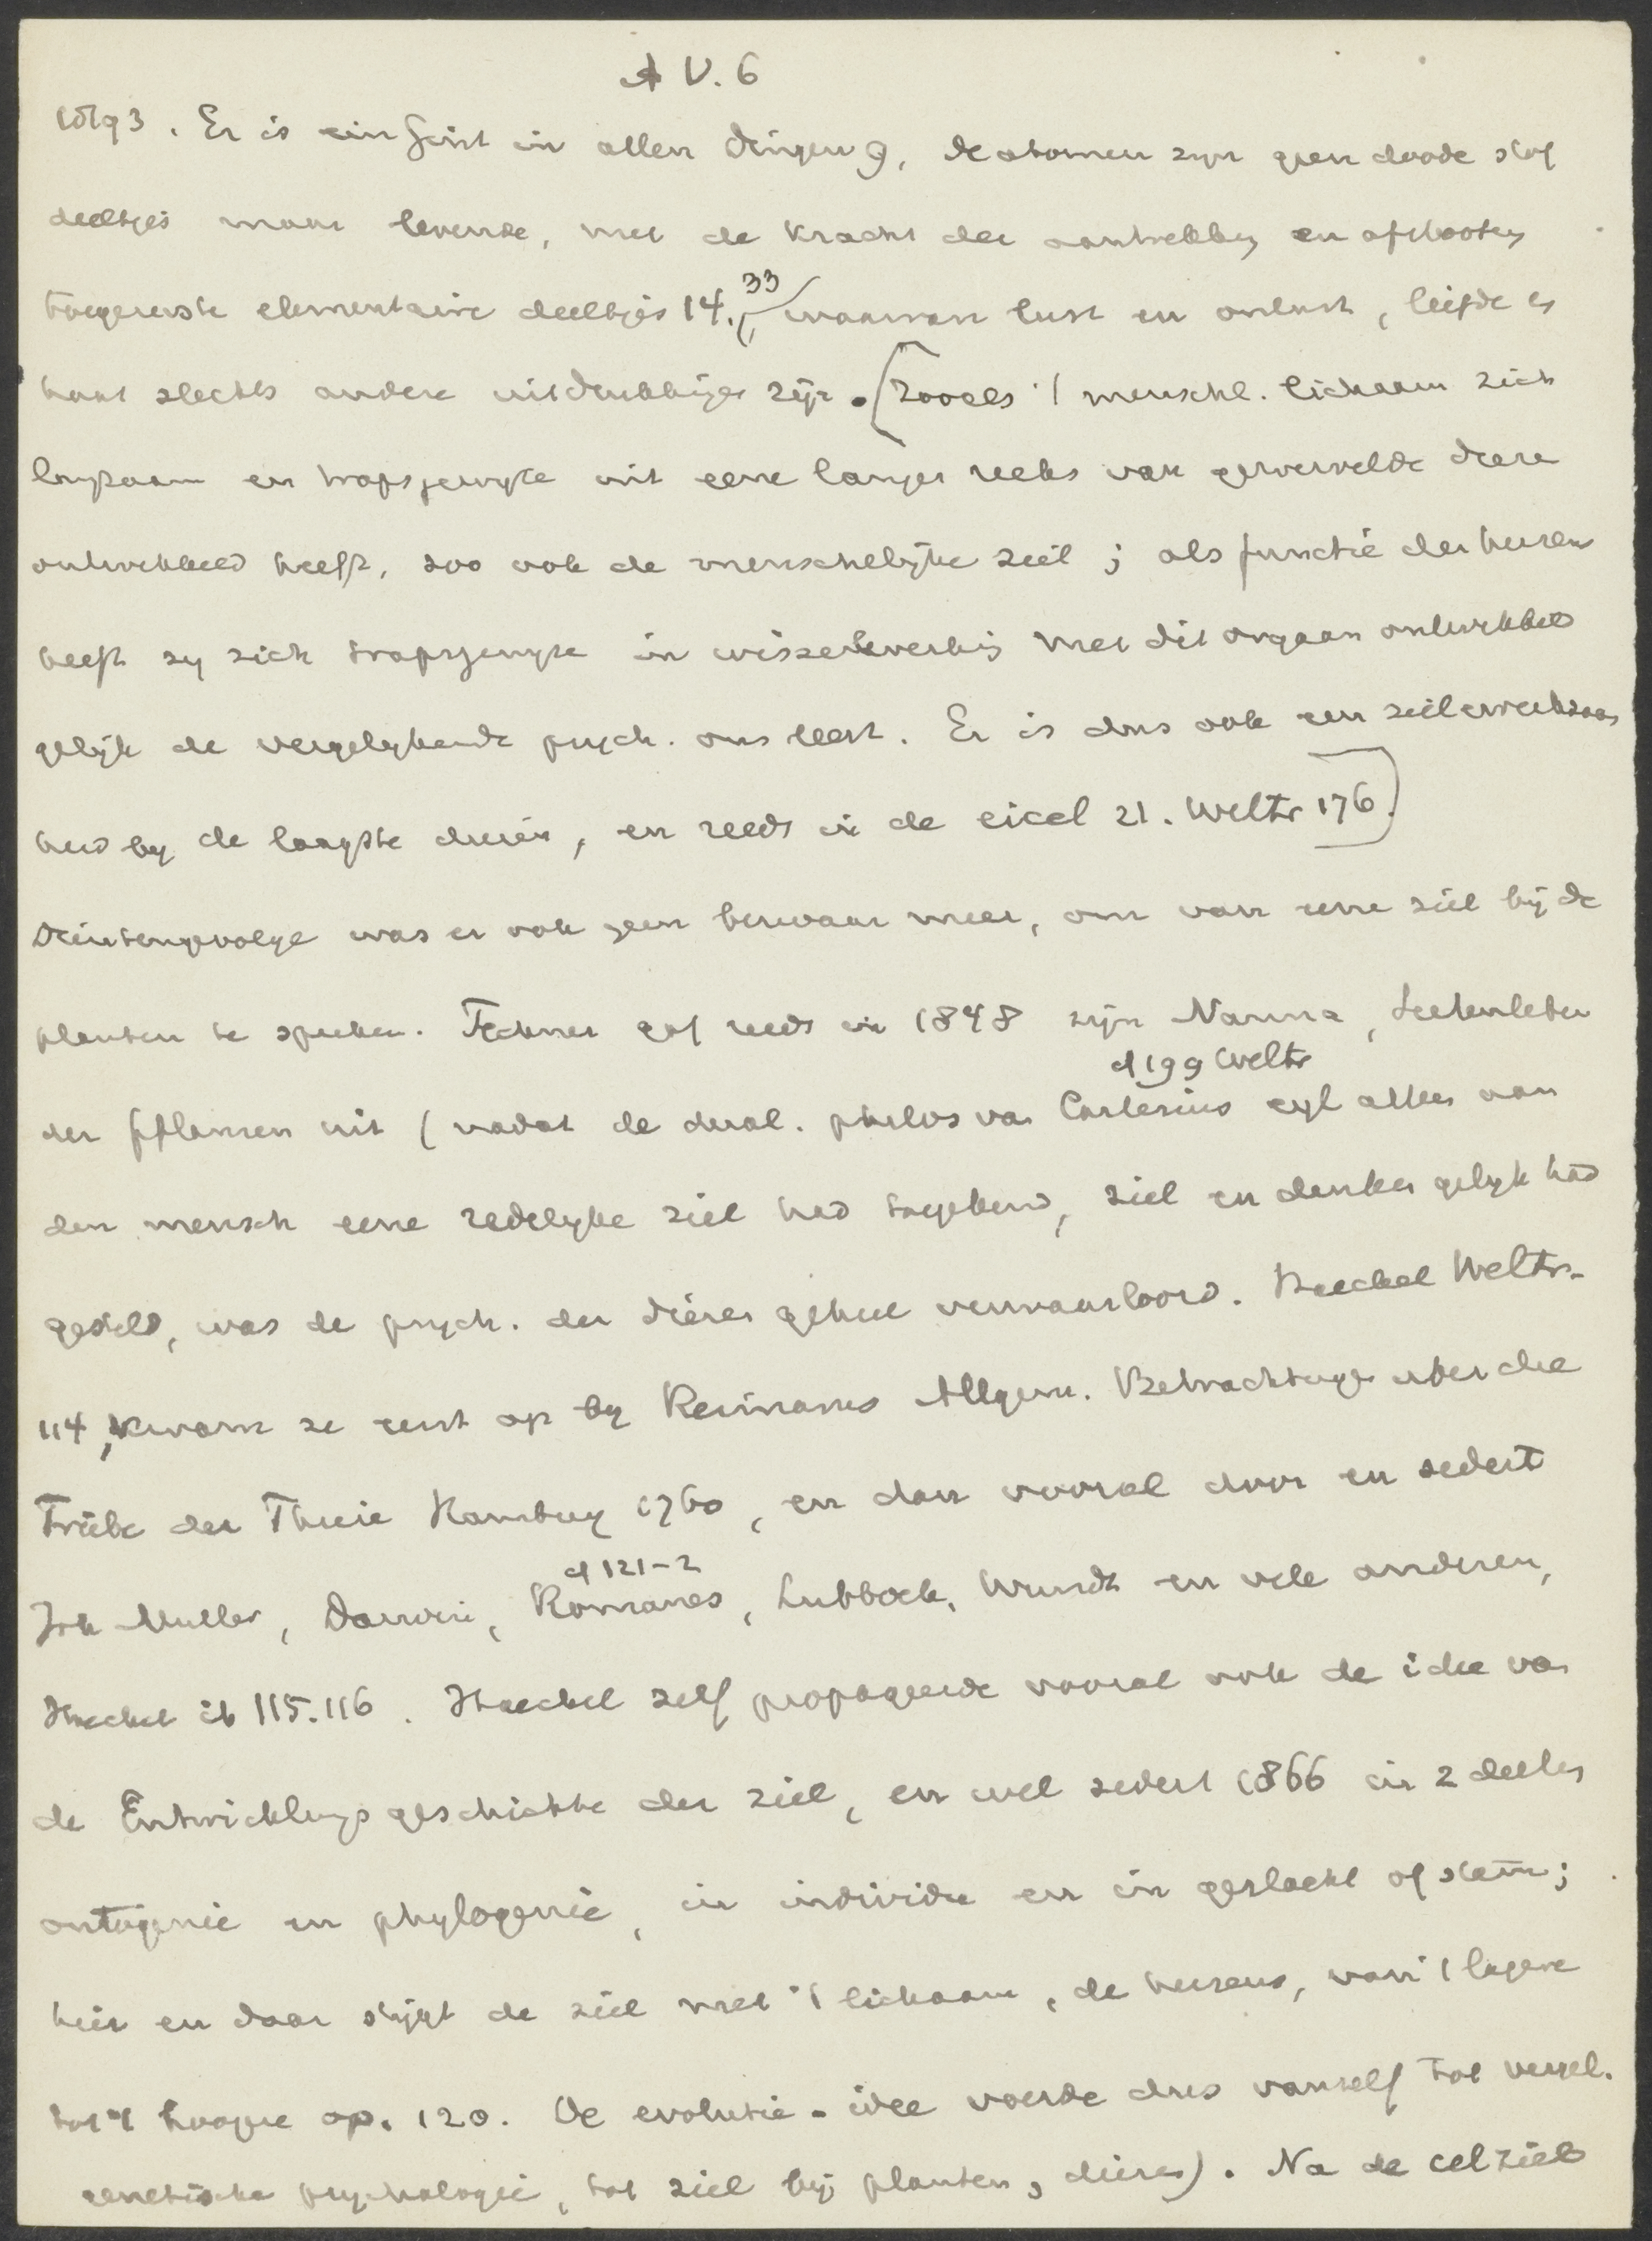 A V. 6
Er is ein Geist in allen Dingen 9, de atomen zijn geen doode stof
deeltjes maar levende, met de kracht der aantrekking en afstooting
toegeruste elementaire deeltjes 14. 33 waarvan lust en onlust, liefde en
haat slechts andere uitdrukkingen zijn. [Zooals 't menschl. lichaam zich
langzaam en trapsgewijze uit eene lange reeks van gewervelde dieren
ontwikkeld heeft, zoo ook de menschelijke ziel; als functie der hersens
heeft zy zich trapsgewijze in wisselwerking met dit orgaan ontwikkeld
gelijk de vergelijkende psych. ons leert. Er is dus ook een zielswerkzaam
heid by de laagste dieren, en reeds in de eicel 21. Weltr 176.]
Dientengevolge was er ook geen bezwaar meer, om van eene ziel bij de
planten te spreken. Fechner gaf reeds in 1848 zijn Nanna, Seelenleben
der Pflanzen uit (nadat de dual. philos van Cartesius cf 199 Weltr wyl alleen aan
den mensch eene redelyke ziel had toegekend, ziel en denken gelyk had
gesteld, was de psych. der dieren geheel verwaarloosd. Haeckel Weltr.
114, kwam ze eerst op by Reimarus Allgem. Betrachtungen über die
Triebe der Thiere Hamburg 1760, en dan vooral door en sedert
Joh Muller, Darwin, Romanes cf 121-2, Lubbock, Wundt en vele anderen,
Haeckel ib 115.116. Haeckel zelf propageerde vooral ook de idee van
de Entwicklungsgeschichte der ziel, en wel sedert 1866 in 2 deelen
ontogenie en phylogenie, in individu en in geslacht of stam;
hier en daar stijgt de ziel met 't lichaam, de hersens, van 't lagere
tot 't hoogere op. 120. De evolutie-idee voerde dus vanzelf tot vergel.
genetische psychologie, tot ziel bij planten, dieren). Na de celziel